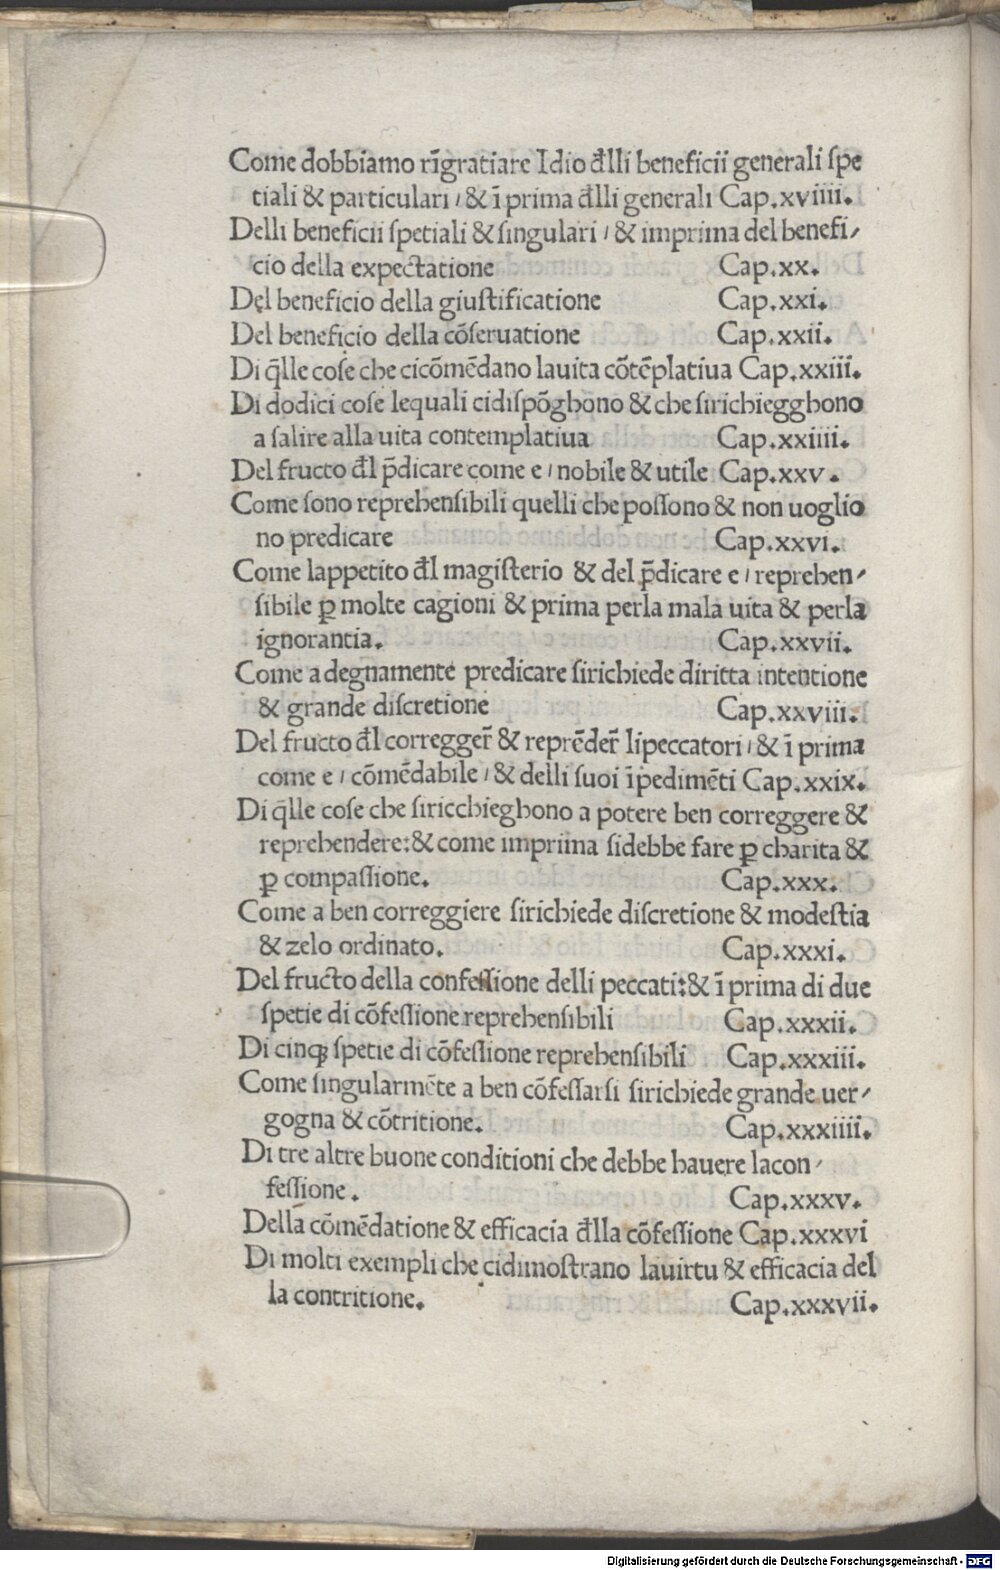 Come dobbiamo rĩgratiare Idio đlli beneficii generali ſpe
tiali & particulari / & ĩ prima đlli generali Cap.xviiii.
Delli beneficii ſpetiali & ſingulari / & imprima del benefi/
cio della expectatione Cap.xx.
Del beneficio della giuſtificatione Cap.xxi.
Del beneficio della cõſeruatione Cap.xxii.
Di q̃lle coſe che cicõmẽdano lauita cõtẽplatiua Cap.xxiii.
Di dodici coſe lequali cidiſpõghono & che ſirichiegghono
a ſalire alla uita contemplatiua Cap.xxiiii.
Del fructo đl p̃dicare come e / nobile & utile Cap.xxv.
Come ſono reprehenſibili quelli che poſſono & non uoglio
no predicare Cap.xxvi.
Come lappetito đl magiſterio & del p̃dicare e / reprehen/
ſibile ꝑ molte cagioni & prima perla mala uita & perla
ignorantia. Cap.xxvii.
Come a degnamente predicare ſirichiede diritta intentione
& grande diſcretione Cap.xxviii.
Del fructo đl corregger̃ & reprẽder̃ lipeccatori / & ĩ prima
come e / cõmẽdabile / & delli ſuoi ĩpedimẽti Cap.xxix.
Di q̃lle coſe che ſiricchieghono a potere ben correggere &
reprehendere: & come imprima ſidebbe fare ꝑ charita &
ꝑ compaſſione. Cap.xxx.
Come a ben correggiere ſirichiede diſcretione & modeſtia
& zelo ordinato. Cap.xxxi.
Del fructo della confeſſione delli peccati: & ĩ prima di due
ſpetie di cõfeſſione reprehenſibili Cap.xxxii.
Di cinqꝫ ſpetie di cõfeſſione reprehenſibili Cap.xxxiii.
Come ſingularmẽte a ben cõfeſſarſi ſirichiede grande uer/
gogna & cõtritione. Cap.xxxiiii.
Di tre altre buone conditioni che debbe hauere lacon/
feſſione. Cap.xxxv.
Della cõmẽdatione & efficacia đlla cõfeſſione Cap.xxxvi
Di molti exempli che cidimoſtrano lauirtu & efficacia del
la contritione. Cap.xxxvii.
Digitalisierung gefördert durch die Deutsche Forschungsgemeinschaft - DFG